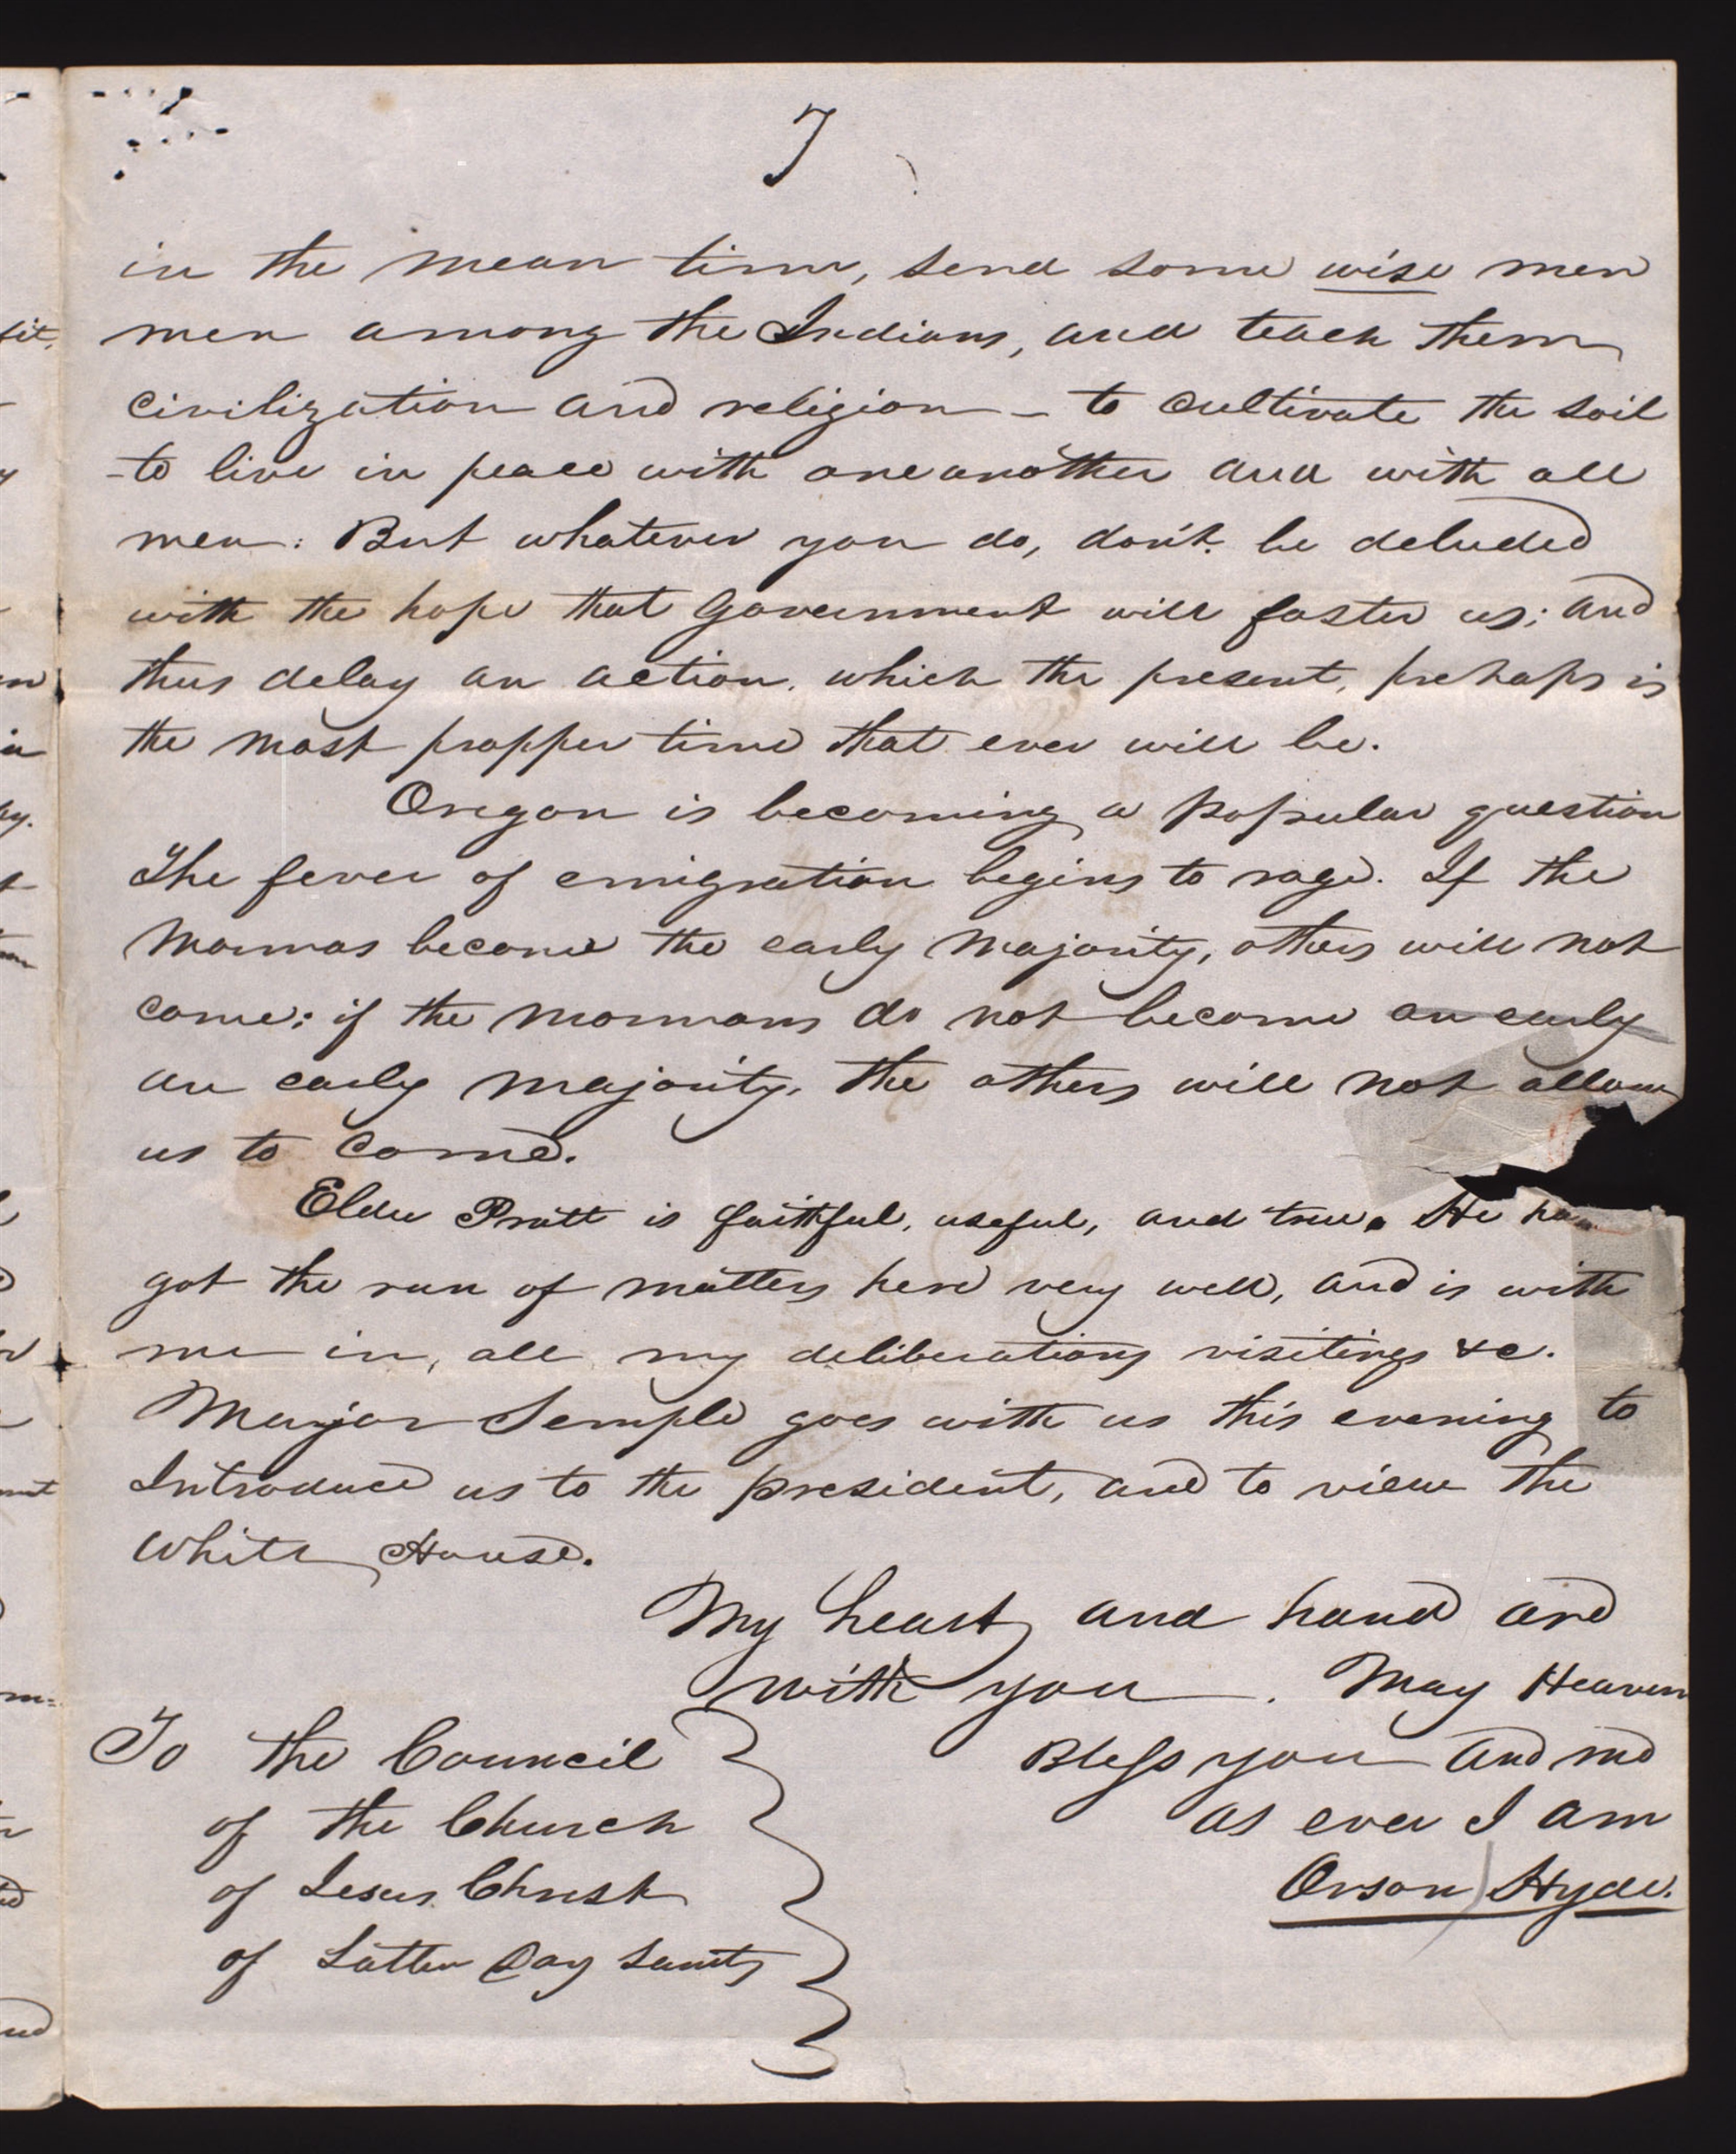 7
in the mean time, send some wise men
men among the Indians, and teach them
civilization and religion – to cultivate the soil
-to live in peace with one another and with all
men: But whatever you do, don't be deluded
with the hope that Government will foster us; and
thus delay an action, which the present, prehaps is
the most propper time that ever will be.
Oregon is becoming a popular question
The fever of emigration begins to rage. If the
Mormos become the early Majority, others will not
come; if the mormons do not become an early
an early majority, the others will not allow
us to come.
Elder Pratt is faithful, useful, and true. He has
got the run of matters here very well, and is with
me in, all my deliberations visitings &c.
Major Semple goes with us this evening to
Introduce us to the president, and to view the
White House.
My heart and hand are
with you. May Heaven
Bless you and me
as ever I am
Orson Hyde.
To the Council
of the Church
of Jesus Christ
of Latter Day Saints